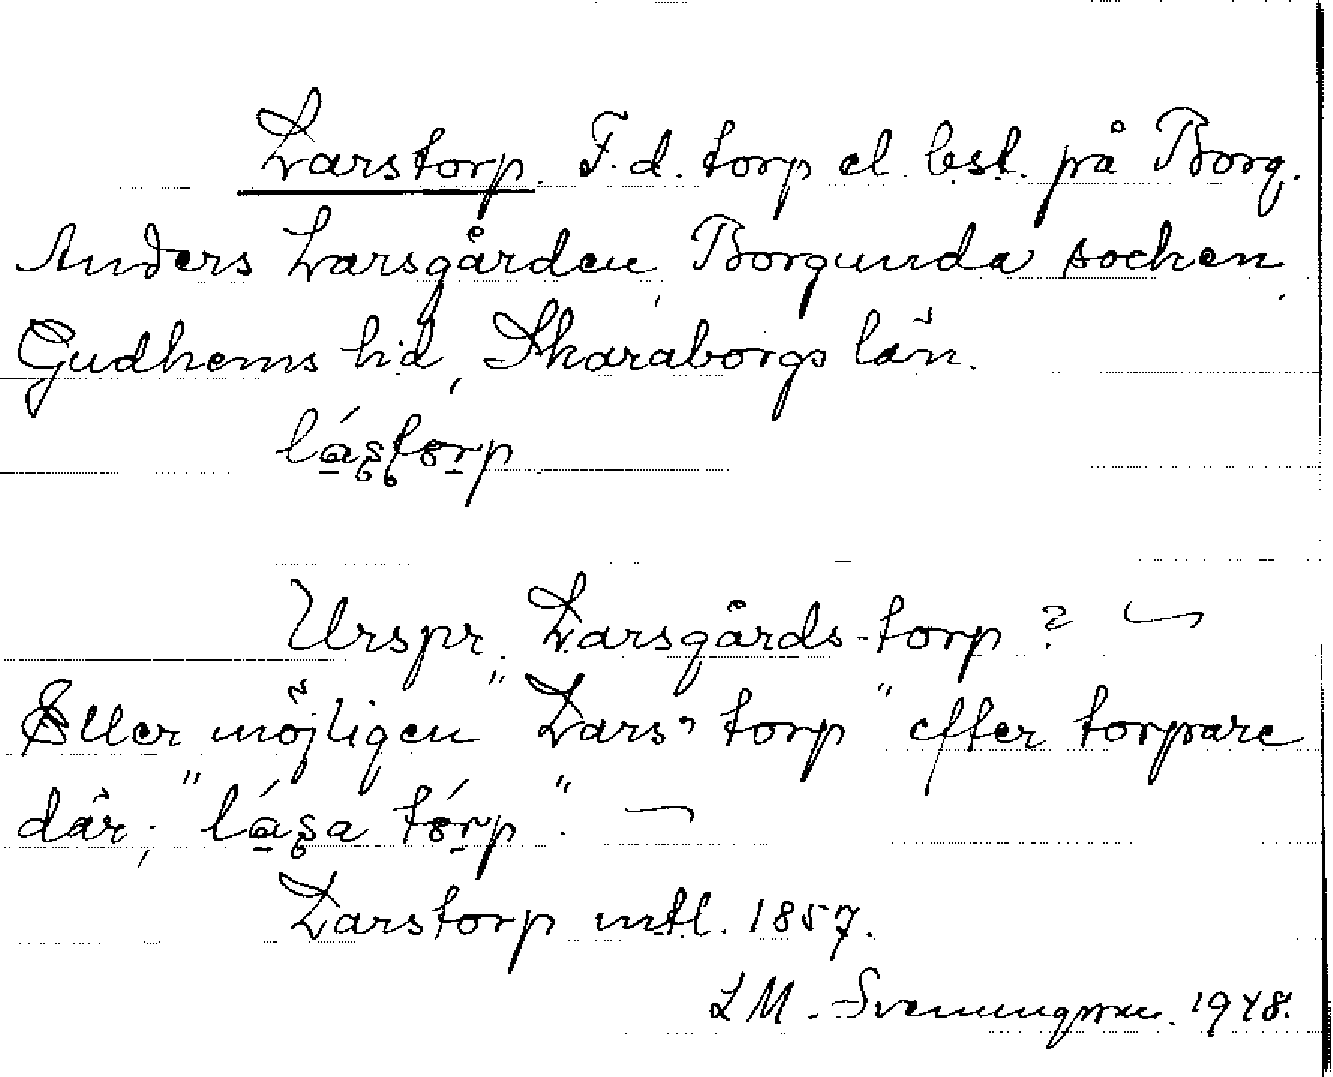 Larstorp. F.d. torp el. bst. på Borg.
Anders Larsgården, Borgunda socken,
Gudhems hd, Skaraborgs län.
lá̱ʂʈɵṟp
Urspr. Larsgårds-torp? —
Eller möjligen "Lars' torp" efter torpare
där; "lá̱ʂa tɵ́ṟp". —
Larstorp mtl. 1857.
L M. Svenungsson. 1948.